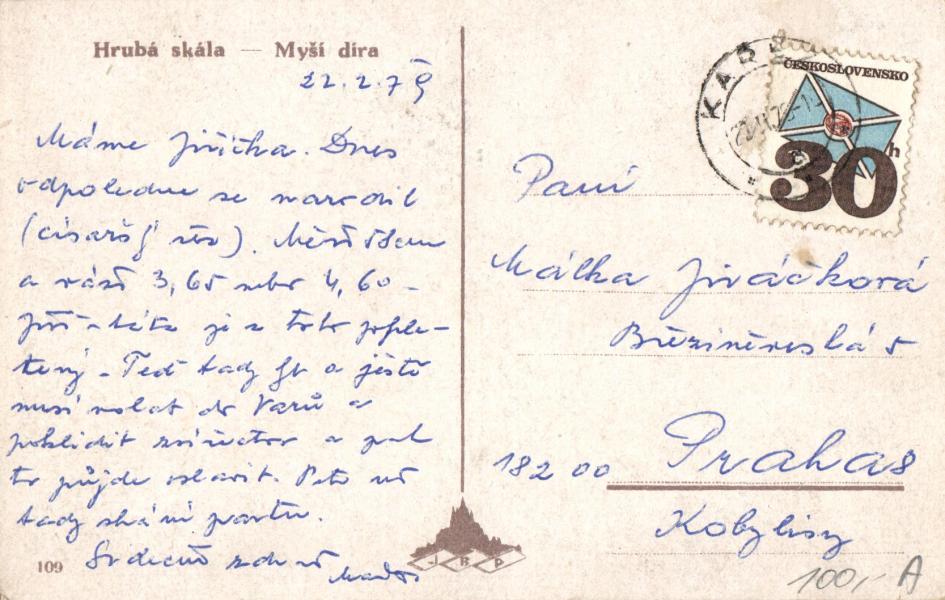 Hrubá skála — Myší díra
22.2.79
Máme Jiříčka. Dnes
odpoledne se narodil
(císařský řez). Měří 53cm
a váží 3,65 nebo 4,60 -
je z toho pople-
tený - Teď tady a ještě
musí volat do Varů a
poklidit a pak
to půjde oslavit. Peto už
tady shání partu.
Srdečně zdraví
109
J B P
ČESKOSLOVENSKO
30
h
Paní
Málka Jiráčková
Březiněveská 5
182 00 Praha 8
Kobylisy
100,- A